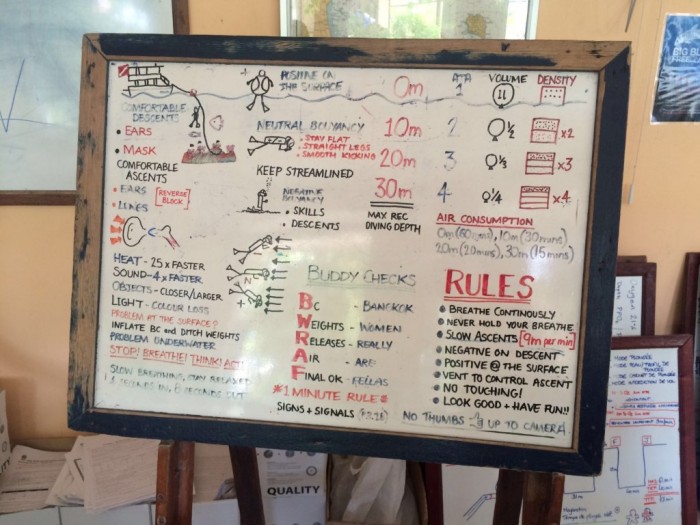 COMFORTABLE
DESCENTS
• EARS
• MASK
COMFORTABLE
ASCENTS
• EARS
• LUNGS
[REVERSE
BLOCK]
HEAT - 25x FASTER
SOUND - 4x FASTER
OBJECTS - CLOSER/LARGER
LIGHT - COLOUR LOSS
PROBLEM AT THE SURFACE?
INFLATE BC and DITCH WEIGHTS
PROBLEM UNDERWATER
STOP! BREATHE! THINK! ACT!
SLOW BREATHING, STAY RELAXED
SECONDS IN, 8 SECONDS OUT
+ POSITIVE ON
THE SURFACE
NEUTRAL BUOYANCY
• STAY FLAT
• STRAIGHT LEGS
• SMOOTH KICKING
KEEP STREAMLINED
NEGATIVE
BUOYANCY
• SKILLS
• DESCENTS
0m
10m
20m
30m
MAX REC
DIVING DEPTH
ATA
1
2
3
4
VOLUME
1
1/2
1/3
1/4
DENSITY
x2
x3
x4
AIR CONSUMPTION
0m (60 mins), 10m (30 mins)
20m (20 mins), 30m (15 mins)
BUDDY CHECKS
BC - BANGKOK
WEIGHTS - WOMEN
RELEASES - REALLY
AIR - ARE
FINAL OK - FELLAS
*1 MINUTE RULE*
SIGNS + SIGNALS
RULES
• BREATHE CONTINOUSLY
• NEVER HOLD YOUR BREATHE
• SLOW ASCENTS [9m per min]
• NEGATIVE ON DESCENT
• POSITIVE @ THE SURFACE
• VENT TO CONTROL ASCENT
• NO TOUCHING!
• LOOK GOOD + HAVE FUN!!
NO THUMBS UP TO CAMERA
BIG BLUE
QUALITY